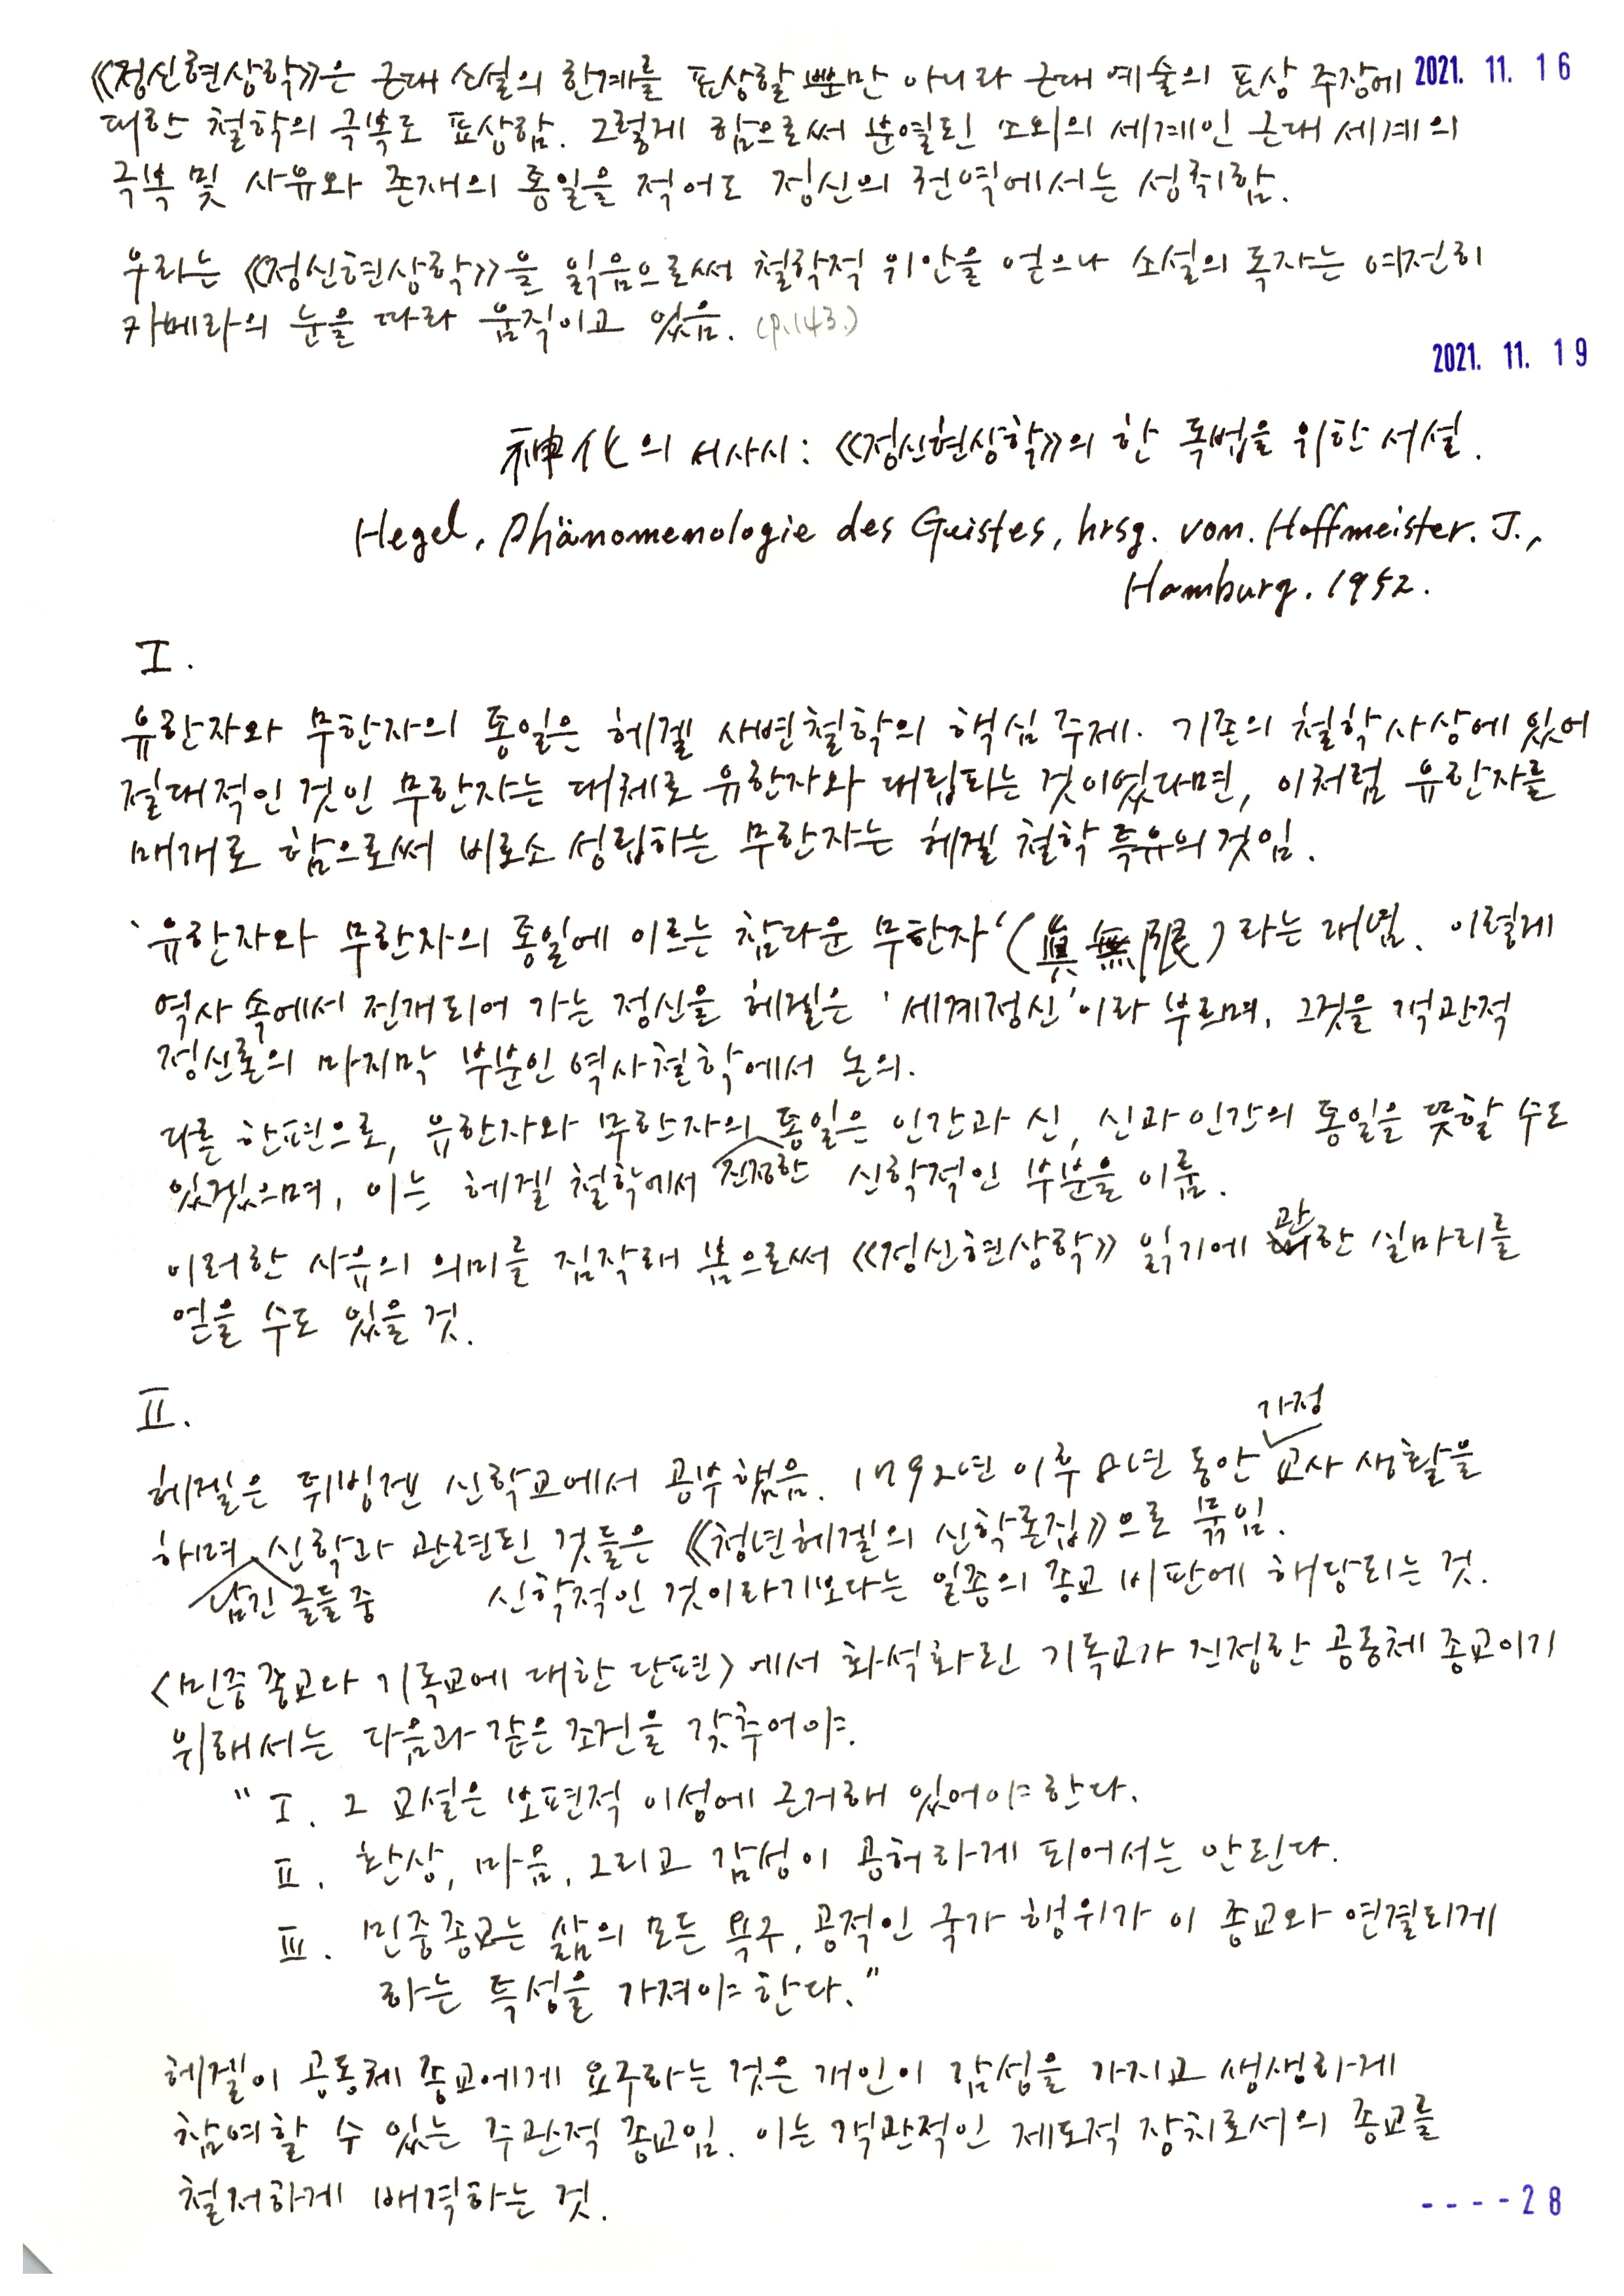 《정신현상학》은 근대 소설의 한계를 표상할 뿐만 아니라 근대 예술의 표상 주장에 2021. 11. 16
대한 철학의 극복도 표상함. 그렇게 함으로써 분열된 소외의 세계인 근대 세계의
극복 및 사유와 존재의 통일을 적어도 정신의 전역에서는 성취함.
우리는 《정신현상학》을 읽음으로써 철학적 위안을 얻으나 소설의 독자는 여전히
카메라의 눈을 따라 움직이고 있음. (p.143.)
2021. 11. 19
神化의 서사시: 《정신현상학》의 한 독법을 위한 서설.
Hegel, Phänomenologie des Geistes, hrsg. von. Hoffmeister. J.,
Hamburg. 1952.
I.
유한자와 무한자의 통일은 헤겔 사변철학의 핵심 주제. 기존의 철학사상에 있어
절대적인 것인 무한자는 대체로 유한자와 대립되는 것이었다면, 이처럼 유한자를
매개로 함으로써 비로소 성립하는 무한자는 헤겔 철학 특유의 것임.
'유한자와 무한자의 통일에 이르는 참다운 무한자'(眞無限)라는 개념. 이렇게
역사 속에서 전개되어 가는 정신을 헤겔은 '세계정신'이라 부르며, 그것을 객관적
정신론의 마지막 부분인 역사철학에서 논의.
다른 한편으로, 유한자와 무한자의 통일은 인간과 신, 신과 인간의 통일을 뜻할 수도
있겠으며, 이는 헤겔 철학에서 진정한 신학적인 부분을 이룸.
이러한 사유의 의미를 짐작해 봄으로써 《정신현상학》 읽기에 관한 실마리를
얻을 수도 있을 것.
II.
가정
헤겔은 튀빙겐 신학교에서 공부했음. 1792년 이후 8년 동안 교사 생활을
하며 신학과 관련된 것들은 《청년헤겔의 신학론집》으로 묶임.
남긴 글들 중 신학적인 것이라기보다는 일종의 종교 비판에 해당되는 것.
〈민중종교나 기독교에 대한 단편〉에서 화석화된 기독교가 진정한 공동체 종교이기
위해서는 다음과 같은 조건을 갖추어야.
"I. 그 교설은 보편적 이성에 근거해 있어야 한다.
II. 환상, 마음, 그리고 감성이 공허하게 되어서는 안된다.
III. 민중종교는 삶의 모든 욕구, 공적인 국가 행위가 이 종교와 연결되게
하는 특성을 가져야 한다."
헤겔이 공동체 종교에게 요구하는 것은 개인이 감성을 가지고 생생하게
참여할 수 있는 주관적 종교임. 이는 객관적인 제도적 장치로서의 종교를
철저하게 배격하는 것.
----28